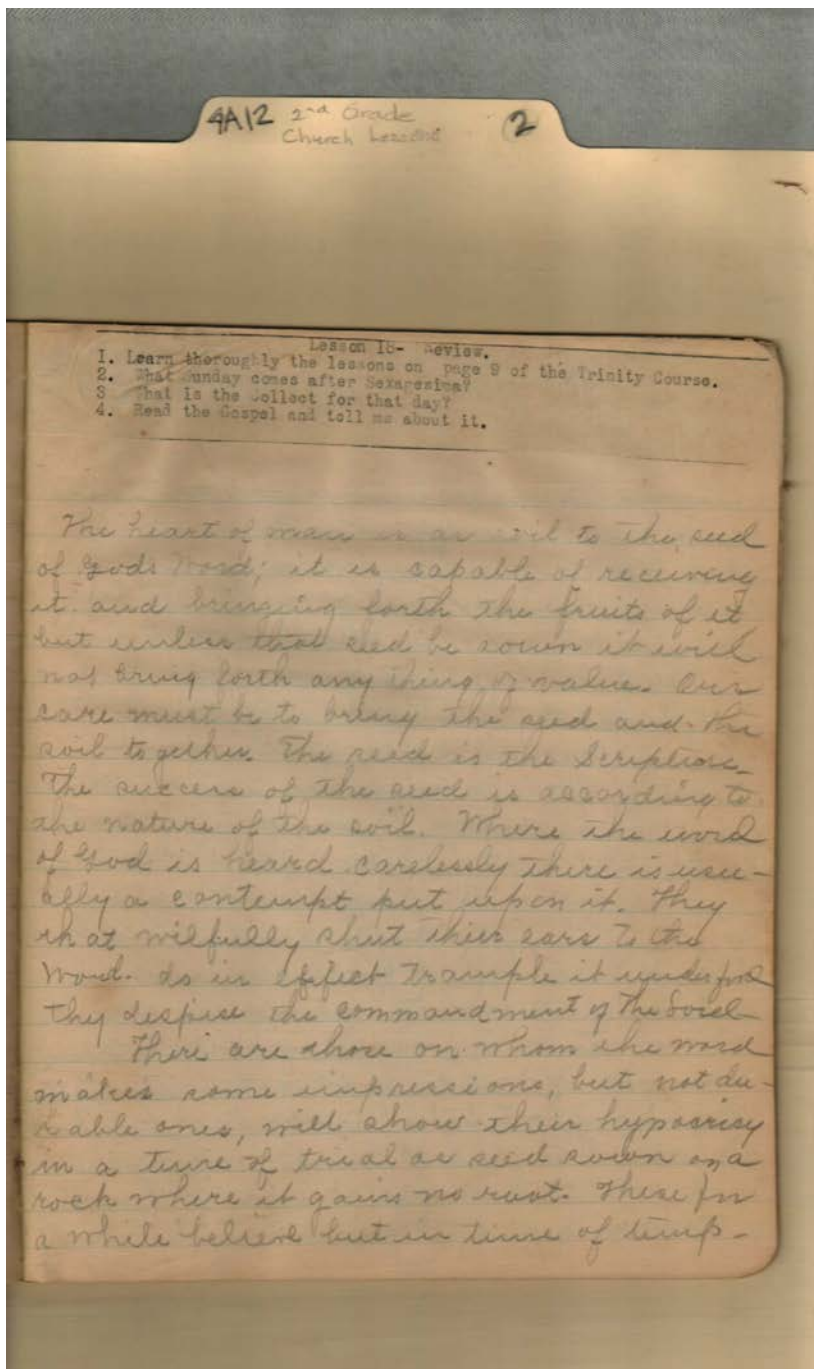 4A12 2nd Grade
Church Lessons
2
Lesson 18- Review.
1. Learn thoroughly the lessons on page 9 of the Trinity Course.
2. What Sunday comes after Sexagesima?
3 What is the Collect for that day?
4. Read the Gospel and tell me about it.
The heart of man is as soil to the seed
of Gods Word; it is capable of receiving
it and bringing forth the fruits of it
but unless that seed be sown it will
not bring forth any thing of value. Our
care must be to bring the seed and the
soil together. The seed is the Scripture.
The success of the seed is according to
the nature of the soil. Where the word
of God is heard carelessly there is usu-
ally a contempt put upon it. They
that wilfully shut thier ears to the
Word do in effect trample it under foot
They despise the commandment of the
There are those on whom the word
makes some impressions, but not du-
rable ones, will show their hypocrisy
in a time of trial as seed sown on a
rock where it gains no root. These for
a while believe but in time of temp-